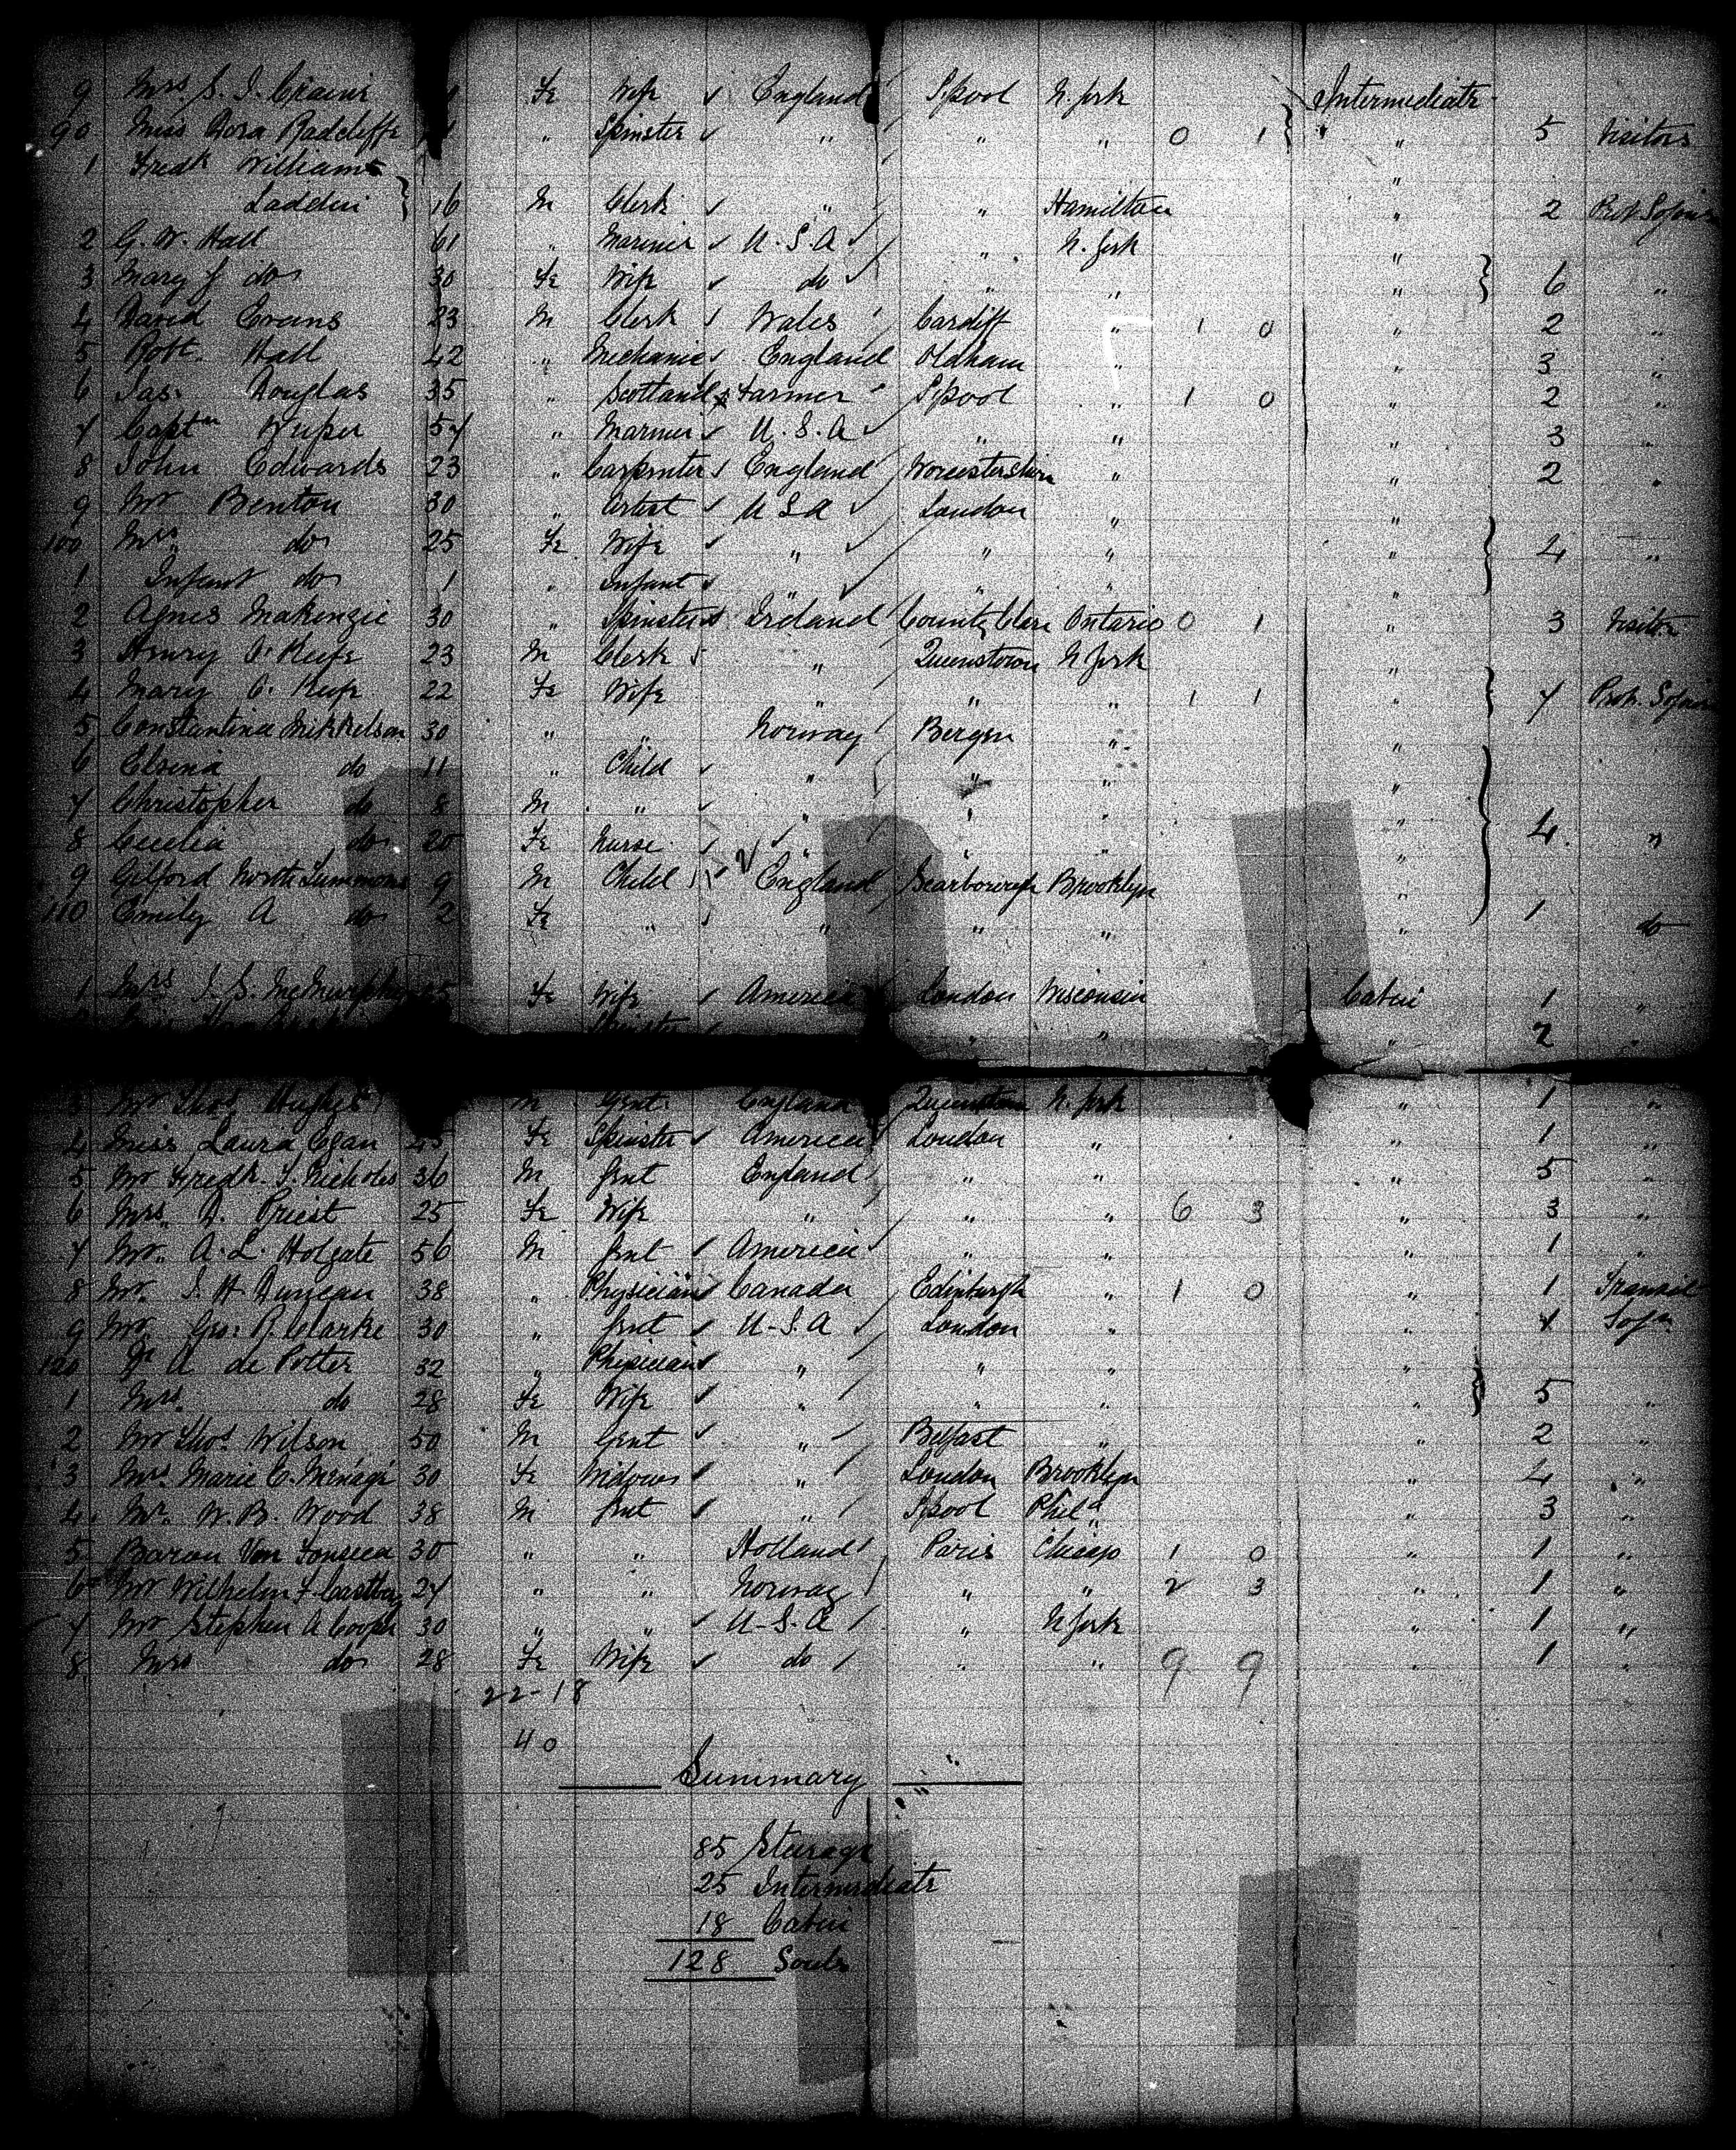 9 Mrs. S. J. Fe Wife ✓ England L'pool N. York Intermediate
90 Miss Dora Radcliffe " Spinster ✓ " " " 0 1 " 5 Visitors
1 Fredk Williams "
Laddin 16 M Clerk ✓ " " Hamilton " 2
2 G. W. Hall 61 " Mariner ✓ U. S. A ✓ " N. York "
3 Mary J do 30 Fe Wife ✓ do ✓ " " " 6 "
4 David Evans 23 M Clerk ✓ Wales Cardiff " 1 0 " 2 "
5 Robt. Hall 42 " Mechanic ✓ England Oldham " " 3 "
6 Jas. Douglas 35 " Scotland Farmer L'pool " 1 0 " 2 "
7 Captn 57 " Mariner ✓ U. S. A ✓ " " " 3 "
8 John Edwards 23 " Carpenter ✓ England Worcestershire " " 2 "
9 Mr Benton 30 " Artist ✓ U S A ✓ London " "
100 Mrs. do 25 Fe Wife ✓ " ✓ " " " 4 "
1 Infant do 1 " Infant ✓ " ✓ " " "
2 Agnes Makenzie 30 " Spinster ✓ Ireland County Clare Ontario 0 1 " 3 Visitor
3 Henry O'Keefe 23 M Clerk ✓ " Queenstown N York "
4 Mary O'Keefe 22 Fe Wife " " " 1 1 " 7
5 Constantina Mikkelson 30 " " Norway Bergen " "
6 Elsina do 11 " Child ✓ " " " "
7 Christopher do 8 M " ✓ " " " "
8 Cecelia do 20 Fe Nurse ✓ " " " " 4 "
9 Gilford North 9 M Child England Scarborough Brooklyn "
110 Emily A do 2 Fe " ✓ " " " " 1 do
1 Mrs. J. S. McMurphy Fe Wife ✓ America London Wisconsin Cabin 1 "
Spinster ✓ " " " 2 "
3 Mr Thos. Hughes M Gent England Queenstown N. York " 1 "
4 Miss Laura Egan 25 Fe Spinster ✓ America London " " 1 "
5 Mr Fredk. S. Nicholes 36 M Gent England " " " 5 "
6 Mrs. D. Priest 25 Fe Wife " " " 6 3 " 3 "
7 Mr. A. L. Holgate 56 M Gent ✓ America " " " 1 "
8 Mr. S. H. Duncan 38 " Physician ✓ Canada Edinburgh " 1 0 " 1 Transit
9 Mr. Geo. R. Clarke 30 " Gent ✓ U-S. A ✓ London " " 7
120 Dr A de Potter 32 " Phisician ✓ " " " "
1 Mrs. do 28 Fe Wife ✓ " " " 5 "
2 Mr Thos. Wilson 50 M Gent ✓ " Belfast " " 2 "
3 Mrs. Marie C. Ménagé 30 Fe Widow ✓ " London Brooklyn " 4 "
4 Mr. W. B. Wood 38 M Gent ✓ " L'pool Phila " 3 "
5 Baron Von Fonseca 30 " " Holland Paris Chicago 1 0 " 1 "
6 Mr Wilhelm F. 27 " " Norway " " 2 3 " 1 "
7 Mr Stephen A Cooph 30 " " ✓ U-S. A " N York " 1 "
8 Mrs do 28 Fe Wife ✓ do " " 9 9 " 1 "
22-18
40
Summary
85 Steerage
25 Intermediate
18 Cabin
128 Souls